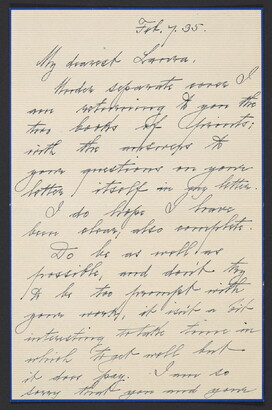 Feb. 7. 35.
My dearest Laura.
Under separate cover I
am returning to you the
two books of prints;
with the answers to
your questions on your
letter itself in my letter.
I do hope I have
been clear, also complete.
Do be as well as
possible, and don't try
to be too prompt with
your work, it isn't a bit
interesting to take time in
which to get well but
it does pay. I am so
sorry that you and your